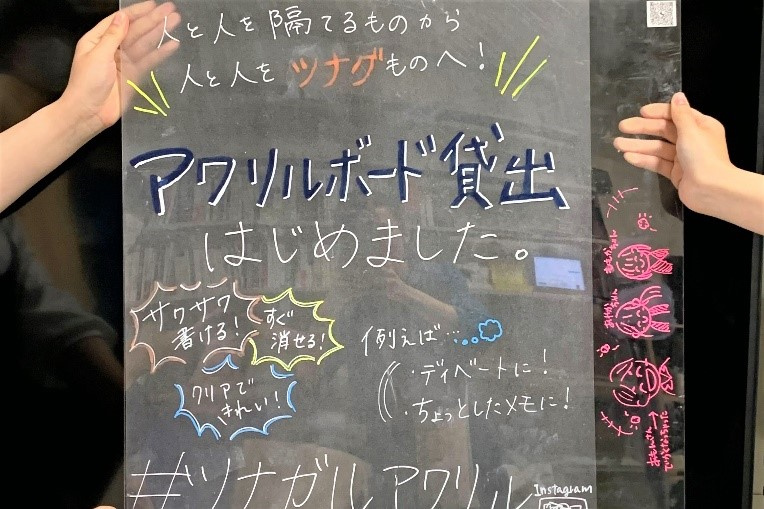 人と人を隔てるものから
人と人をツナグものへ！
アクリルボード貸出
はじめました。
サワサワ
書ける！
すぐ
消せる！
クリアで
きれい！
例えば…
・ディベートに！
・ちょっとしたメモに！
#ツナガルアクリル
Instagram